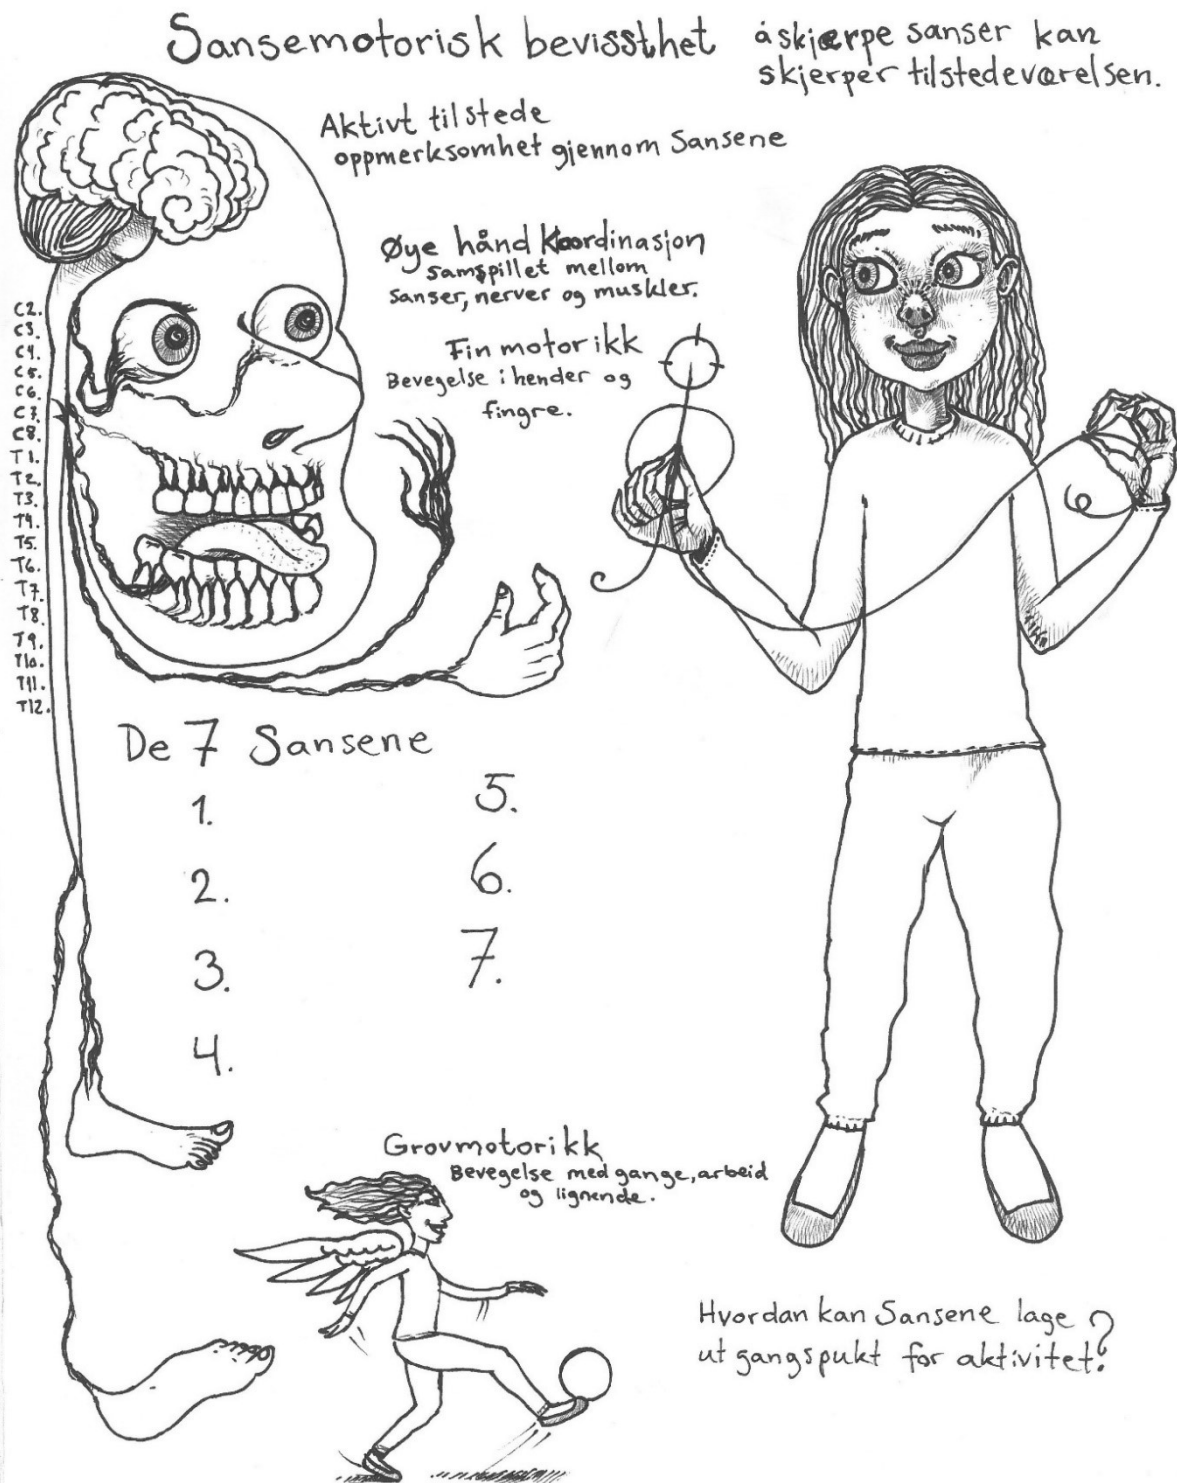 Sansemotorisk bevissthet
å skjærpe sanser kan
skjerper tilstedeværelsen.
Aktivt tilstede
oppmerksomhet gjennom Sansene
Øye hånd Koordinasjon
samspillet mellom
sanser, nerver og muskler.
Fin motorikk
Bevegelse i hender og
fingre.
C2.
C3.
C4.
C5.
C6.
C7.
C8.
T1.
T2.
T3.
T4.
T5.
T6.
T7.
T8.
T9.
T10.
T11.
T12.
De 7 Sansene
1.
2.
3.
4.
5.
6.
7.
Grovmotorikk
Bevegelse med gange, arbeid
og lignende.
Hvordan kan Sansene lage
ut gangspukt for aktivitet?